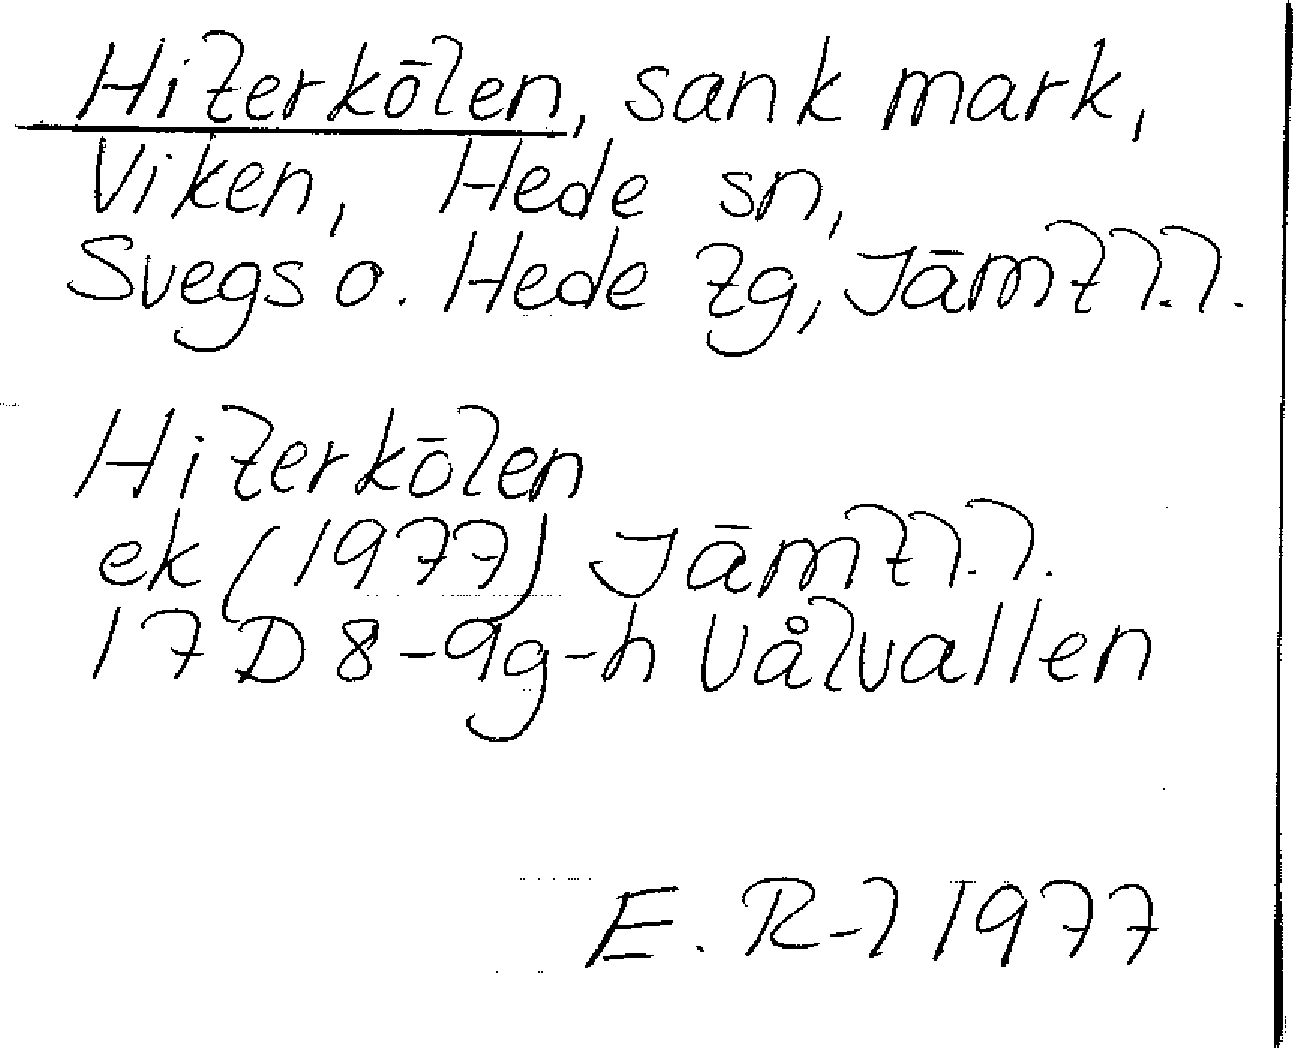 Hiterkölen, sank mark,
Viken, Hede sn,
Svegs o. Hede tg, Jämtl.l.
Hiterkölen
ek (1977) Jämtl.l.
17D 8-9g-h Vålvallen
E. R-l 1977